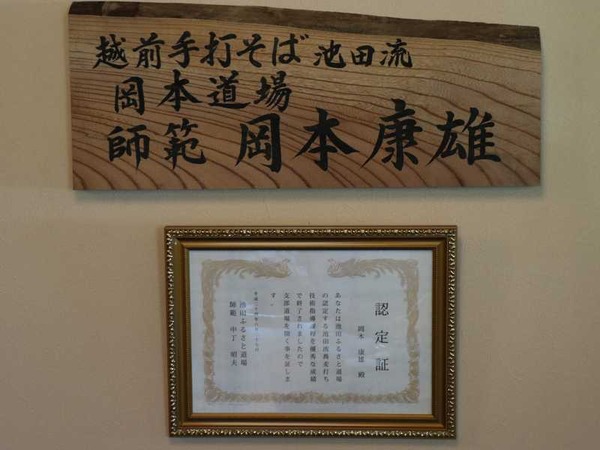 越前手打そば 池田流
岡本道場
師範 岡本康雄
認定証
岡本 康雄 殿
あなたは池田ふるさと道場
の認定する池田流蕎麦打ち
技術指導課程を優秀な成績
で終了されましたので
支部道場を開く事を証しま
す。
池田ふるさと道場
師範 中丁 昭夫